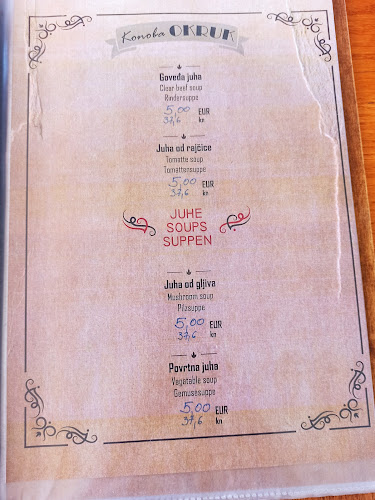 Konoba OKRUK
Goveda juha
Clear beef soup
Rindersuppe
5,00 EUR
37,6 kn
Juha od rajčice
Tomatte soup
Tomattensuppe
5,00 EUR
37,6 kn
JUHE
SOUPS
SUPPEN
Juha od gljiva
Mushroom soup
Pilzsuppe
5,00 EUR
37,6 kn
Povrtna juha
Vagatable soup
Gemusesuppe
5,00 EUR
37,6 kn